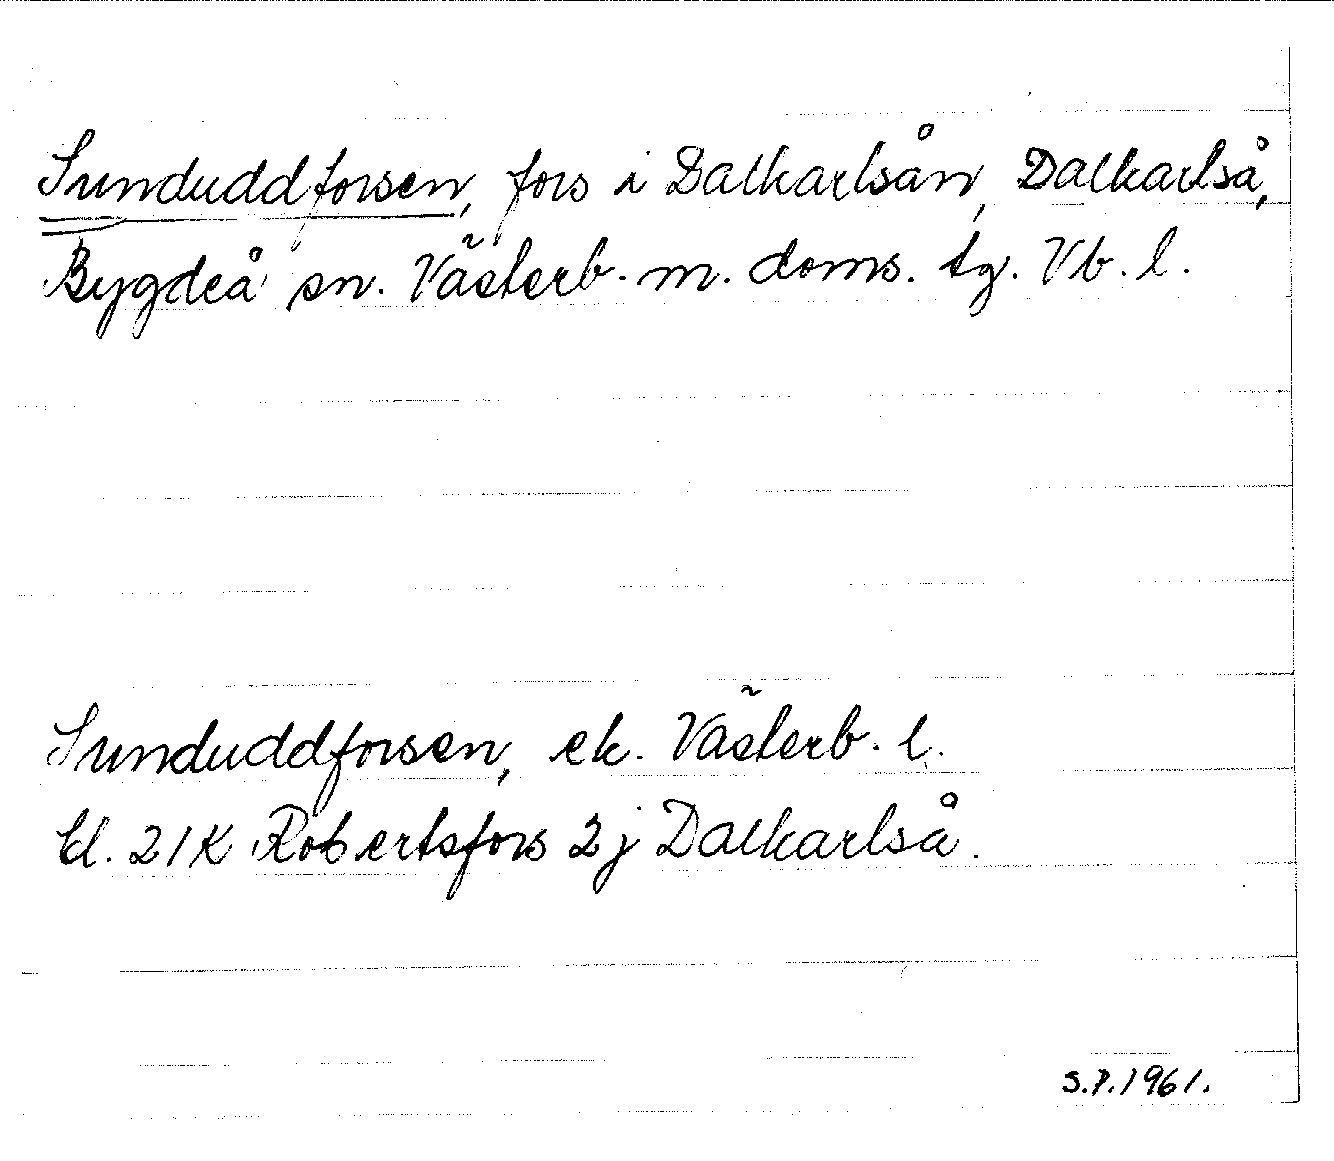 Sunduddforsen, fors i Dalkarlsån, Dalkarlså,
Bygdeå sn. Västerb. m. doms. tg. Vb. l.
Sunduddforsen, ek. Västerb. l.
bl. 21K Robertsfors 2j Dalkarlså.
S.P.1961.